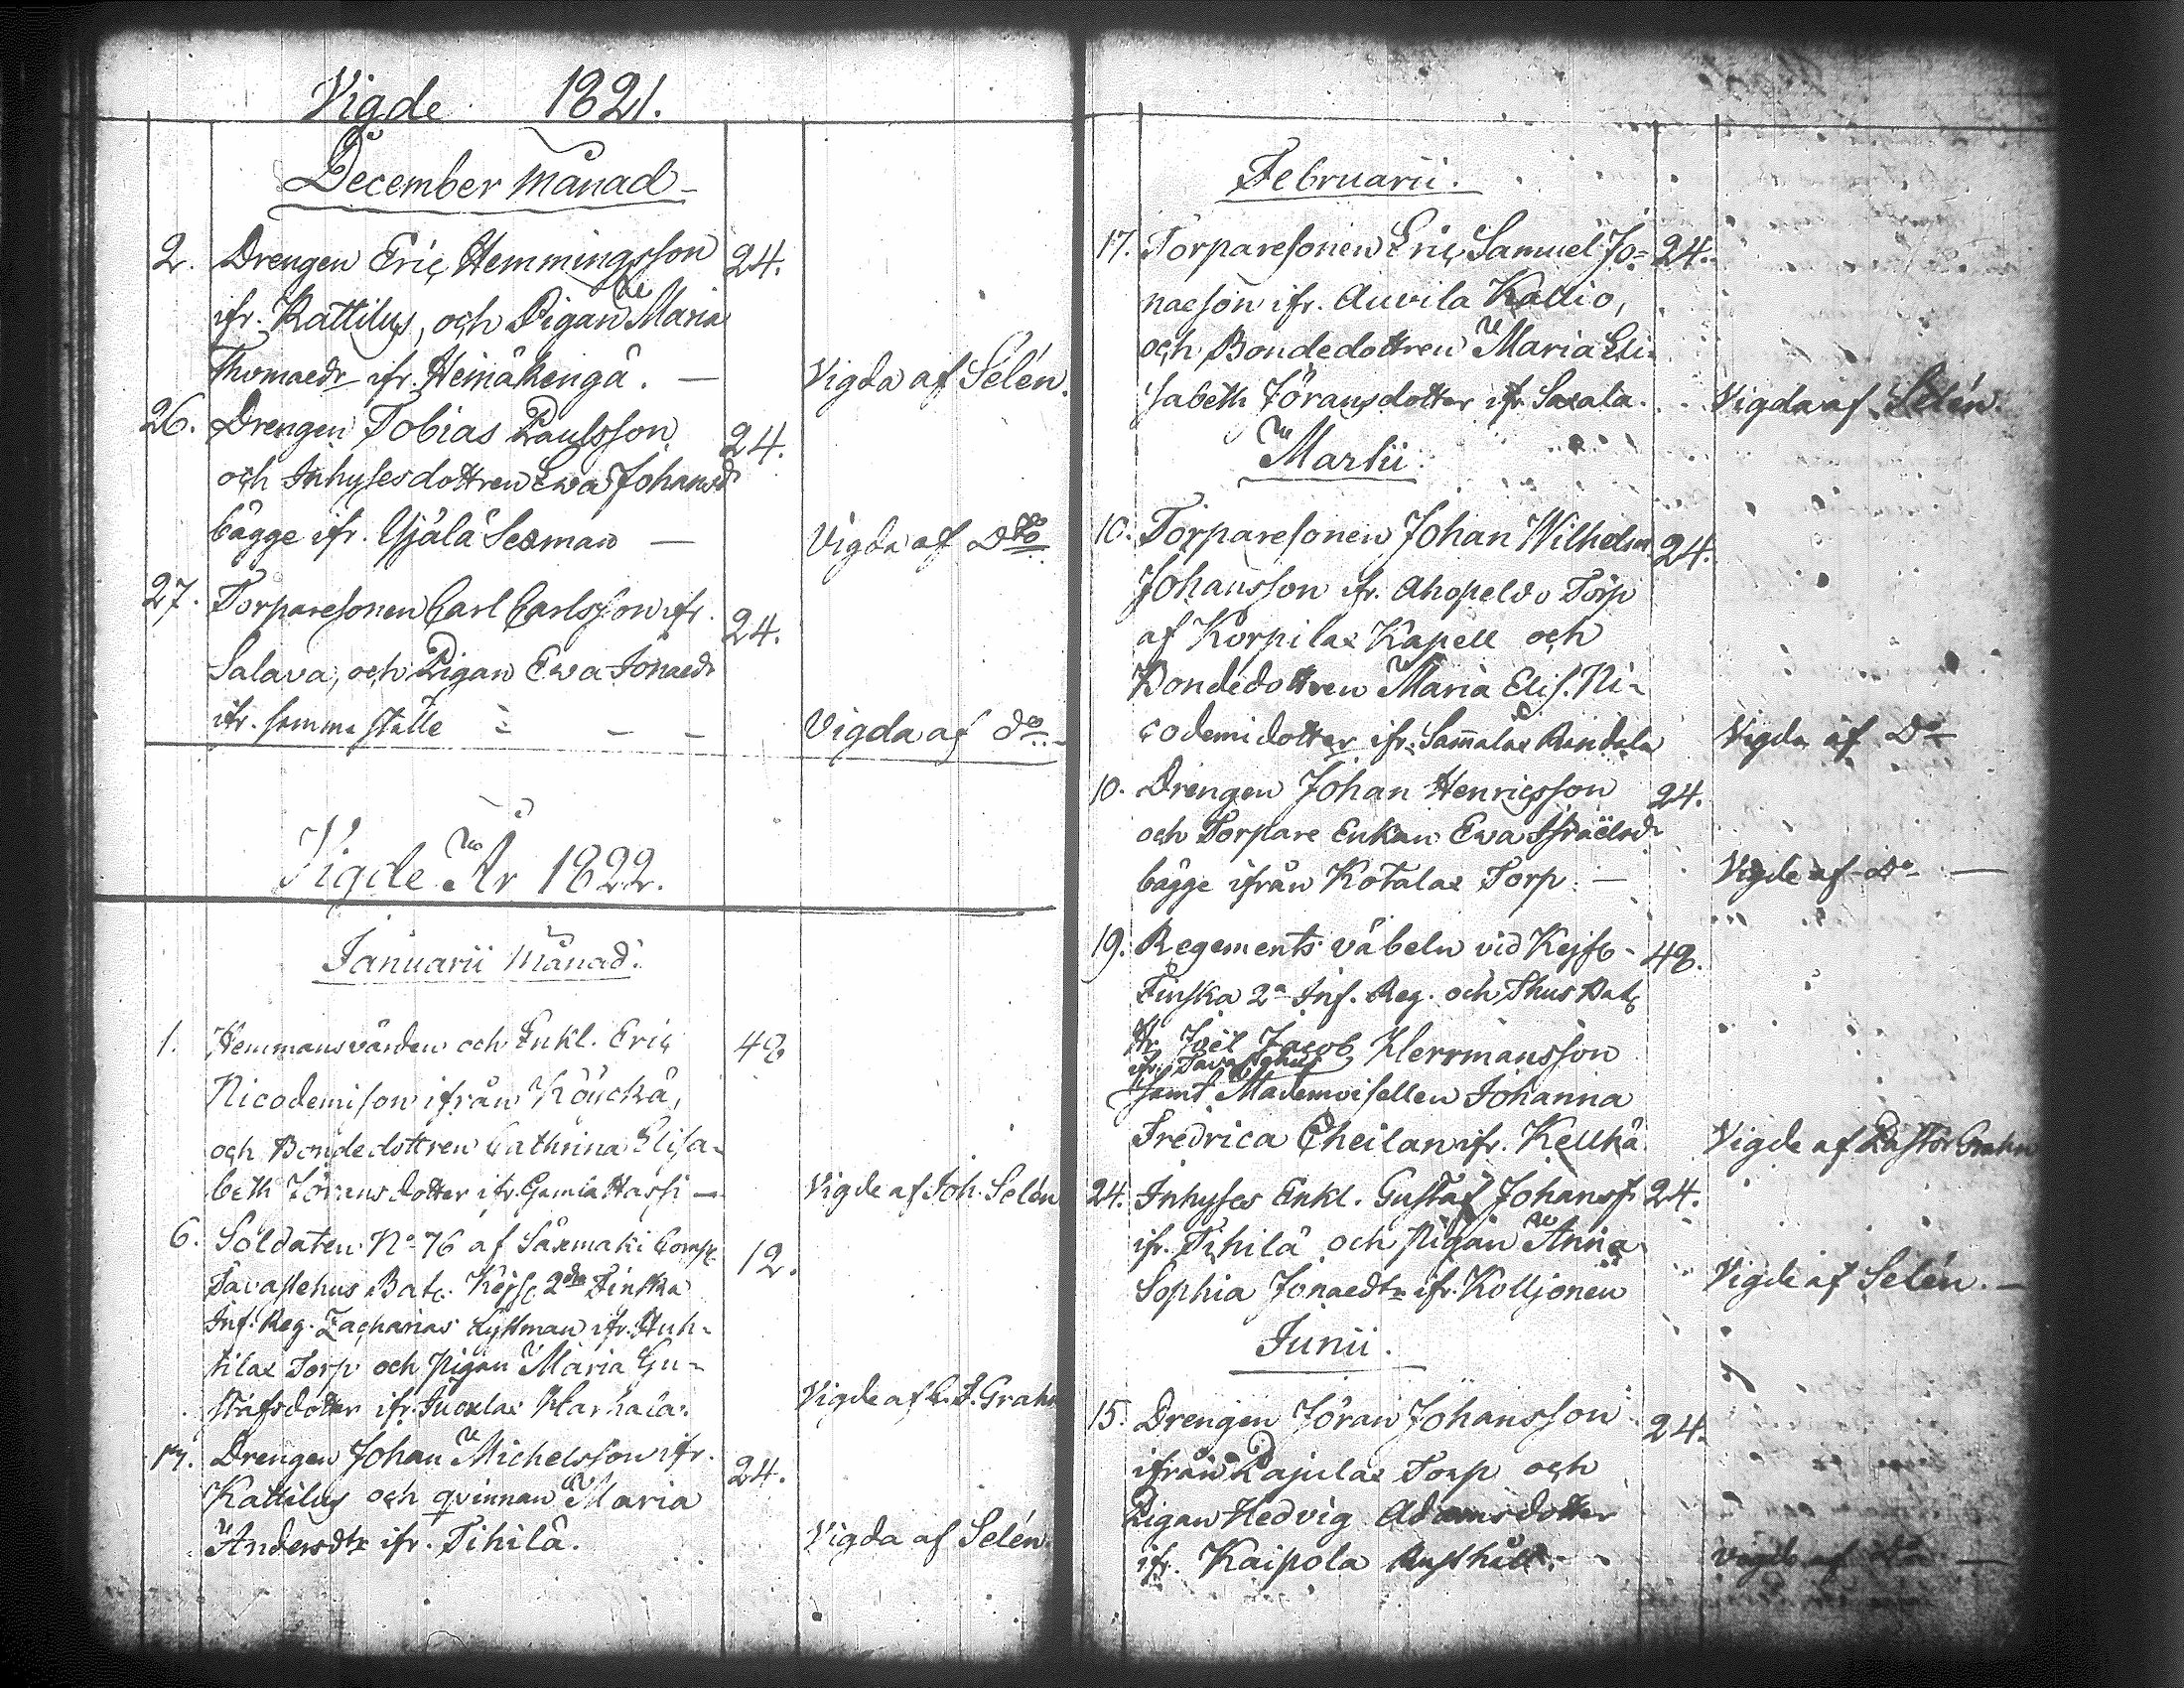 Vigde 1821.
December månad
2. Drengen Eric Hemmingsson 24.
ifr. Kattilus, och Pigan Maria
Thomaedr ifr. Heinäkengä. — Vigda af Selén.
26. Drengen Tobias Paulsson 24.
och Inhysesdottren Ewa Johansd
bägge ifr. Yjälä Sexman — Vigda af Dto
27. Torparesonen Carl Carlsson ifr. 24.
Salava, och Pigan Ewa Jonaedr
ifr. samma ställe - - - Vigda af do
Vigde År 1822.
Januarii månad.
1. Hemmansvärden och Enkl. Eric 48
Nicodemison ifrån Köyckä,
och Bondedottren Cathrina Elisa-
beth Jöransdotter ifr. Gamla Hassi — Vigde af Joh. Selén
6. Soldaten No 76 af Säxmäki Comp. 12.
Tavastehus Bat. Kejs. 2dra Finska
Inf. Reg. Zacharias Lyttman ifr. Huh-
tilax Torp och Pigan Maria Gu-
stafsdotter ifr. Jucklax Harhala. Vigde af C. F. Grahn
17. Drengen Johan Michelsson ifr. 24.
Kattilus och qvinnan Maria
Andersdtr ifr. Tihilä. Vigda af Selén.
Februarii.
17. Torparesonen Eric Samuel Jo- 24.
naeson ifr. Auvila Kallio,
och Bondedottren Maria Eli-
sabeth Jöransdotter ifr. Saxala. Vigda af Selén.
Martii
10. Torparesonen Johan Wilhelm 24.
Johansson ifr. Ahopeldo Torp
af Korpilax Kapell och
Bondedottren Maria Elis. Ni-
codemidotter ifr. Samalax Rindala Vigda af Do
10. Drengen Johan Henricsson 24.
och Torpare Enkan Ewa Israëlsd.
bägge ifrån Kotalax Torp. — Vigde af Do —
19. Regements väbeln vid Kejs. 48.
Finska 2a Inf. Reg. och Thus Bat.
Hr Joël Jacob Herrmansson
ifr. Tavastehus
samt Mademoisellen Johanna
Fredrica Cheilan ifr. Kellhä Vigde af Pastor Grahn
24. Inhyses Enkl. Gustaf Johanss. 24.
ifr. Tihilä och Pigan Anna
Sophia Jonaedtr ifr. Kolljonen Vigde af Selén. —
Junii.
15. Drengen Jöran Johansson 24.
ifrån Pajulax Torp och
Pigan Hedvig Adamsdotter
ifr. Kaipola Rusthåll. Vigde af Do —